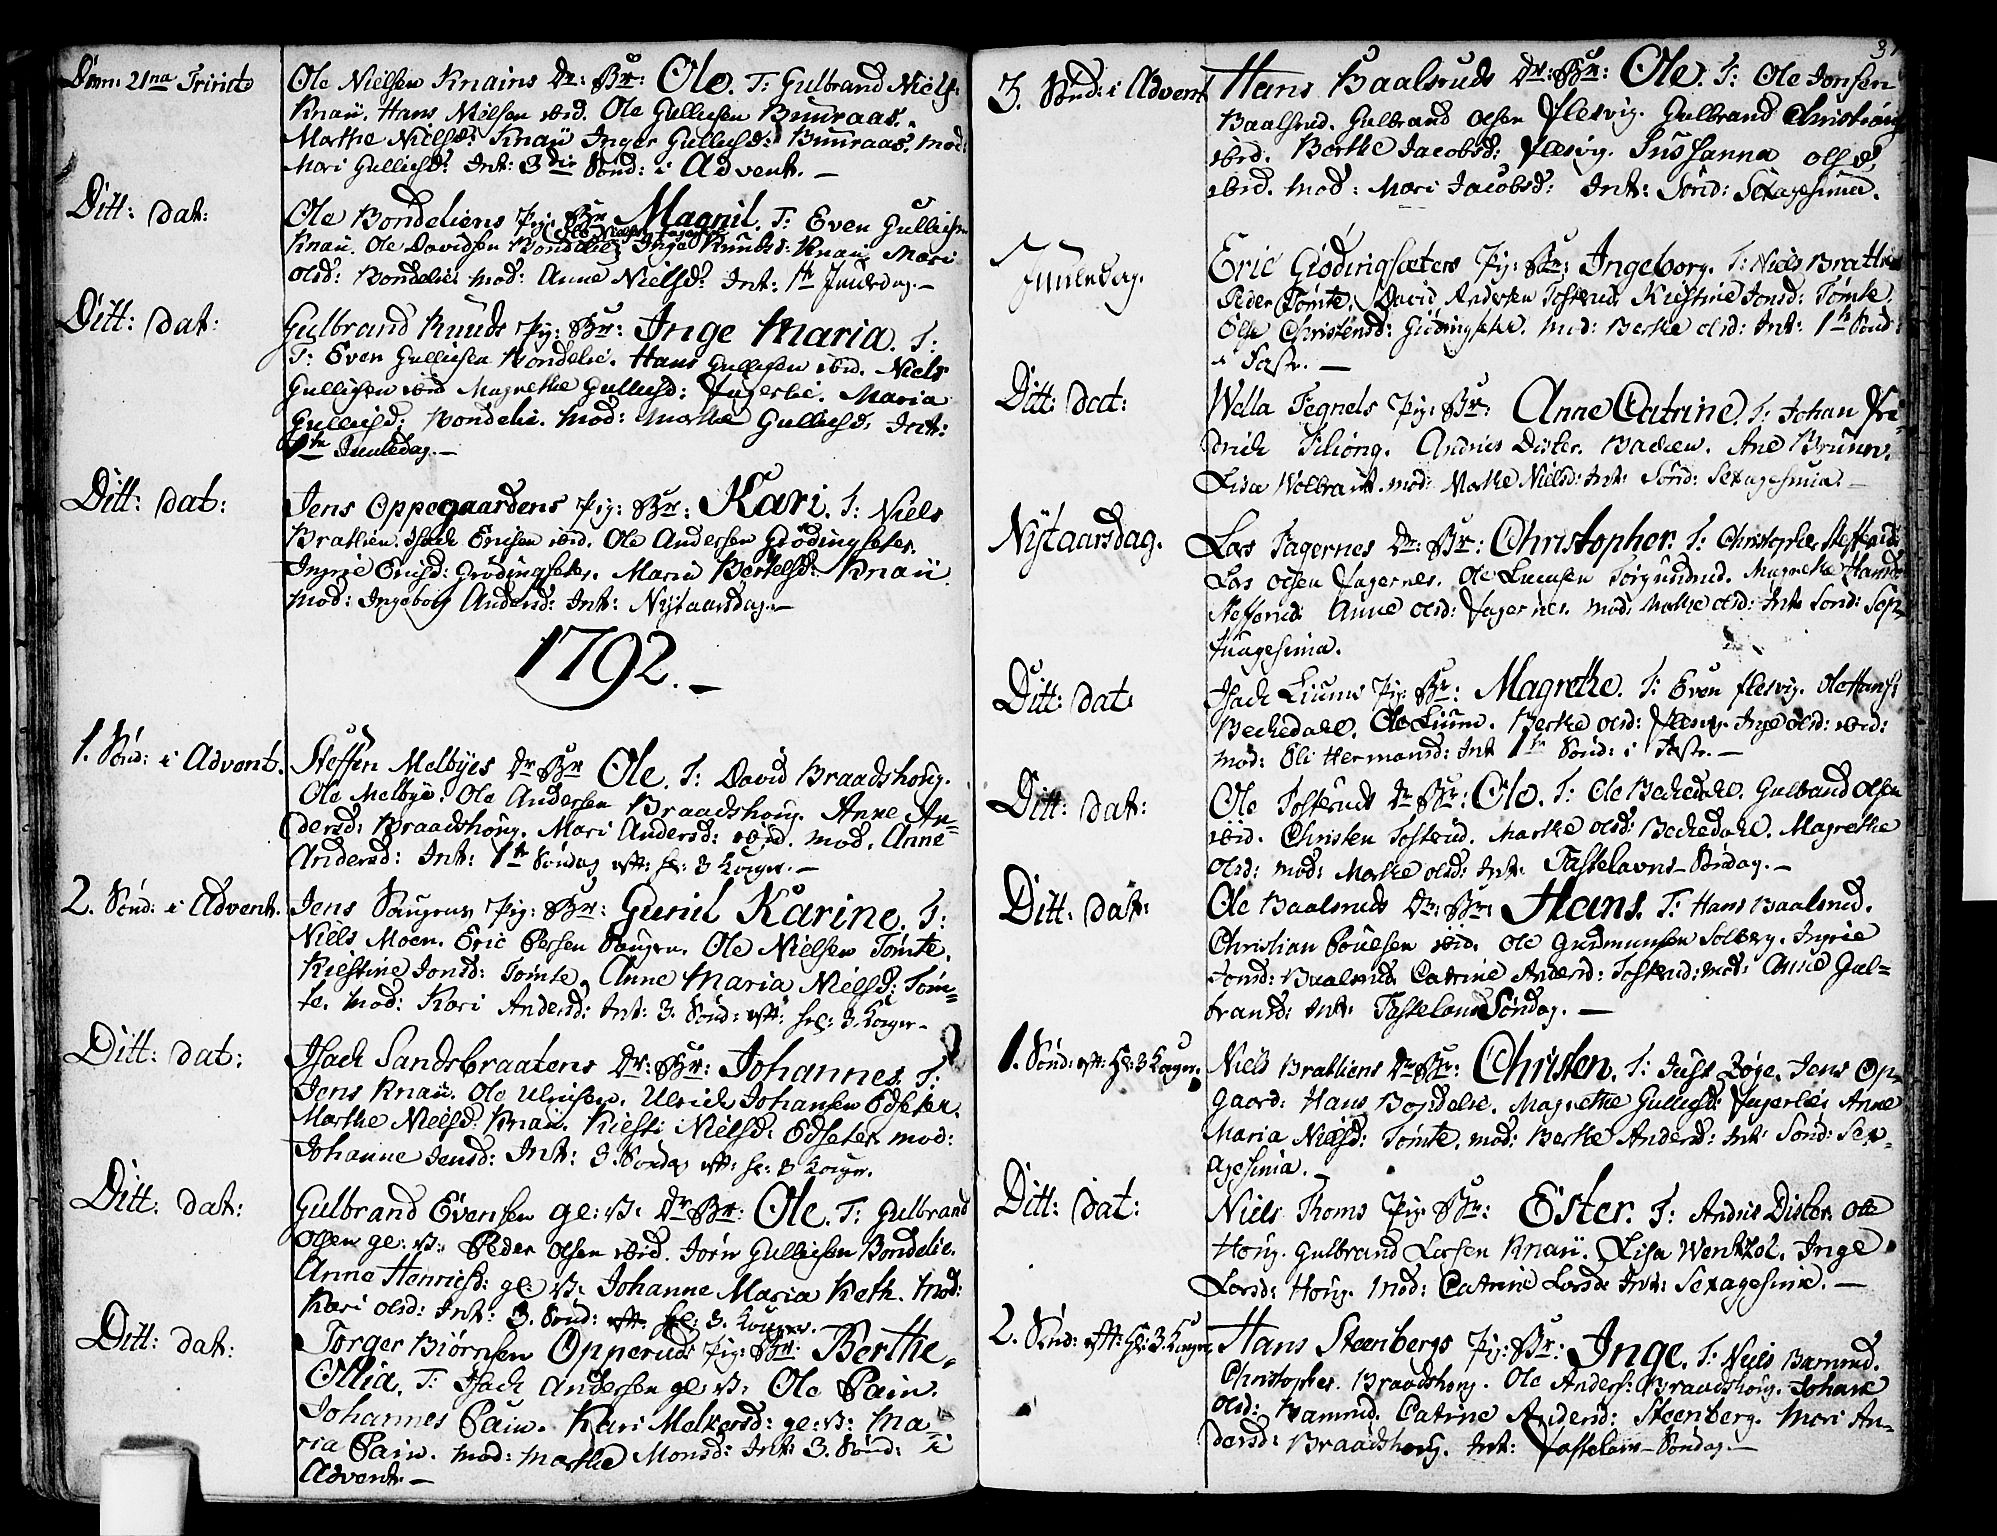 Dom: 21na Trinit:
Ole Nielsen Knains Dr: Br: Ole. T: Gulbrand Niels:
Knaü. Hans Nielsen ibid. Ole Gulliksen Buuraas.
Marthe Nielsd: Knaü Inger Gullichsd: Buuraas. mod:
Mari Gullichsd: Int: 3die Sönd: i Advent. —
Ditt: dat:
Ole Bondeliens Pig: Br: Magnil. T: Even Gullichsen
Knaü. Ole Davidsen Bondelie. Inga Knuds: Knaü. Mari
Olsd: Bondelie. mod: Anne Nielsd: Int: 1te Juuledag. —
Ditt: dat:
Gulbrand Ruuds Pig: Br: Inge Maria. T:
T: Even Gullichsen Bondelie. Hans Gullichsen ibid. Niels
Gullichsen ibid Magrethe Gullichsd: Fagerlie. Maria
Gullichsd: Bondelie. mod: Marthe Gullichsd: Int:
1te Juuledag. —
Ditt: dat:
Jens Oppegaardens Pig: Br: Kari. T: Niels
Brathen. Isach Ericsen ibid. Ole Andersen Grödingseter.
Ingrie Ericsd: Grödingseter. Maria Bertelsd: Knaü.
mod: Ingeborg Andersd: Int: Nytaarsdag. —
1792. —
1. Sönd: i Advent.
Steffen Melbyes Dr Br Ole. T: David Braadshoug.
Ole Melbye. Ole Andersen Braadshoug. Anne An-
dersd: Braadshoug. Mari Andersd: ibid. mod. Anne
Andersd: Int: 1te Söndag eft: hel: 3 Konger. —
2. Sönd: i Advent.
Jens Saugens Pig: Br: Guruil Karine. T:
Niels Moen. Eric Persen Saugen. Ole Nielsen Tömte.
Kiestine Jonsd: Tömte. Anne Maria Nielsd: Töm-
te. mod: Kari Andersd: Int: 3. Sönd: eft: hel: 3. Konger —
Ditt: dat:
Isach Sandsbraatens Dr: Br: Johannes. T:
Jens Knaü. Ole Ulrichsen. Ulrich Johansen Edseter.
Marthe Nielsd: Knaü. Kiesti Nielsd: Edseter mod:
Johanne Jensd: Int: 3 Söndag eft: hel: 3 Konger.
Ditt: dat:
Gulbrand Evensen ge: V: Dr Br: Ole. T: Gulbrand
Olsen ge: V: Peder Olsen ibid. Jörn Gullichsen Bondelie.
Anne Henrichsd: ge V: Johanne Maria Keth. mod:
Kari Olsd: Int: 3. Sönd: eft: hel: 3. Konger.
Ditt: dat:
Torger Biörnsen Opperuds Pig: Br: Berthe
Ollia. T: Isach Andersen ge: V: Ole Pain.
Johannes Pain. Kari Melkersd: ge: V: Ma-
ria Pain. mod: Marthe Monsd: Int: 3. Sönd: i
Advent. —
3. Sönd: i Advent
Hans Baalsruds Dr: Br: Ole. T: Ole Jonsen
Baalsrud. Gulbrand Olsen Flesvig. Gulbrand Christians
ibid. Berthe Jacobsd: Flesvig. Sussanna Olsd:
ibid. mod: Mari Jacobsd: Int: Sönd: Sexagesima.
Juuledag.
Eric Giödingseters Pig: Br: Ingeborg. T: Niels Brathen
Peder Tömte. David Andersen Tosterud. Kiestine Jonsd: Tömte.
Olia Christensd: Giödingseter. mod: Berthe Olsd: Int: 1te Sönd:
i Faste. —
Ditt: dat:
Wella Tegnels Pig: Br: Anne Catrine. T: Johan Fri-
drich Tiliong. Andries Dister. Bachen. Ane Brunn.
Lisa Wolbrant. mod: Marthe Nielsd: Int: Sönd: Sexagesima. —
Nytaarsdag.
Lars Fagernes Dr: Br: Christopher. T: Christopher Stefferud:
Lars Olsen Fagernes. Ole Larsen Torgundrud. Magrethe Hansd:
Stefferud. Anne Olsd: Fagernes. mod: Mathe Olsd: Int: Sönd: Sep-
tuagesima.
Ditt: dat
Isach Liums Pig: Br: Magrethe. T: Even Flesvig. Ole Hans:
Bechedahl. Ole Lium. Berthe Olsd: Flesvig. Inge Olsd: ibid:
mod: Eli Hermansd: Int 1te Sönd: i Faste. —
Ditt: dat:
Ole Tosteruds Dr Br: Ole. T: Ole Bechedahl. Gulbrand Olsen
ibid. Christen Tosterud. Marthe Olsd: Bechedahl. Magrethe
Olsd: mod: Marthe Olsd: Int: Fastelavns-Söndag. —
Ditt: dat:
Ole Baalsruds Dr: Br: Hans. T: Hans Baalsrud.
Christian Poulsen ibid. Ole Gudmunsen Solberg. Ingrie
Jonsd: Baalsrud. Catrine Andersd: Tosterud: mod: Anne Gul-
bransd: Int: Fastelavns Söndag. —
1. Sönd: eft: Hel: 3 Konger.
Niels Brathens Dr Br: Christen. T: Just Böye. Jens Op-
gaard: Hans Bondelie. Magrethe Gullichsd: Fagerlie. Anne
Maria Nielsd: Tömte. mod: Berthe Andersd: Int: Sönd: Sex-
agesima. —
Ditt: dat:
Niels Thoms Pig: Br: Ester. T: Andris Dister. Ole
Houg. Gulbrand Larsen Knaü. Lisa Wentzel. Inge
Larsd: Houg. mod: Catrine Larsd: Int: Sexagesima. —
2. Sönd: eft: Hel: 3 Konger.
Hans Steenbergs Pig: Br: Inge. T: Niels Ramrud.
Christopher Braadshoug. Ole Anders: Braadshoug. Johane
Olsd: Ramrud. Catrine Andersd: Steenberg. Mari An-
dersd: Braadshoug. Int: Fastelavn-Söndag. —